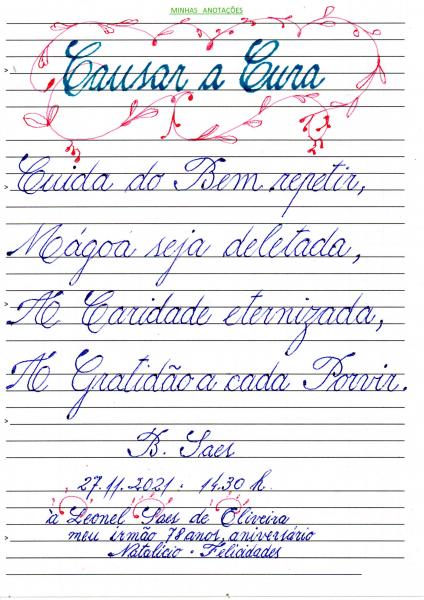 MINHAS ANOTAÇÕES
Causar a Cura
Cuida do Bem repetir,
Mágoa seja deletada,
A Caridade eternizada,
A Gratidão a cada Porvir.
B. Saes
27.11.2021 - 14.30 h.
à Leonel Saes de Oliveira
meu irmão 78 anos, aniversário
Natalício - Felicidades